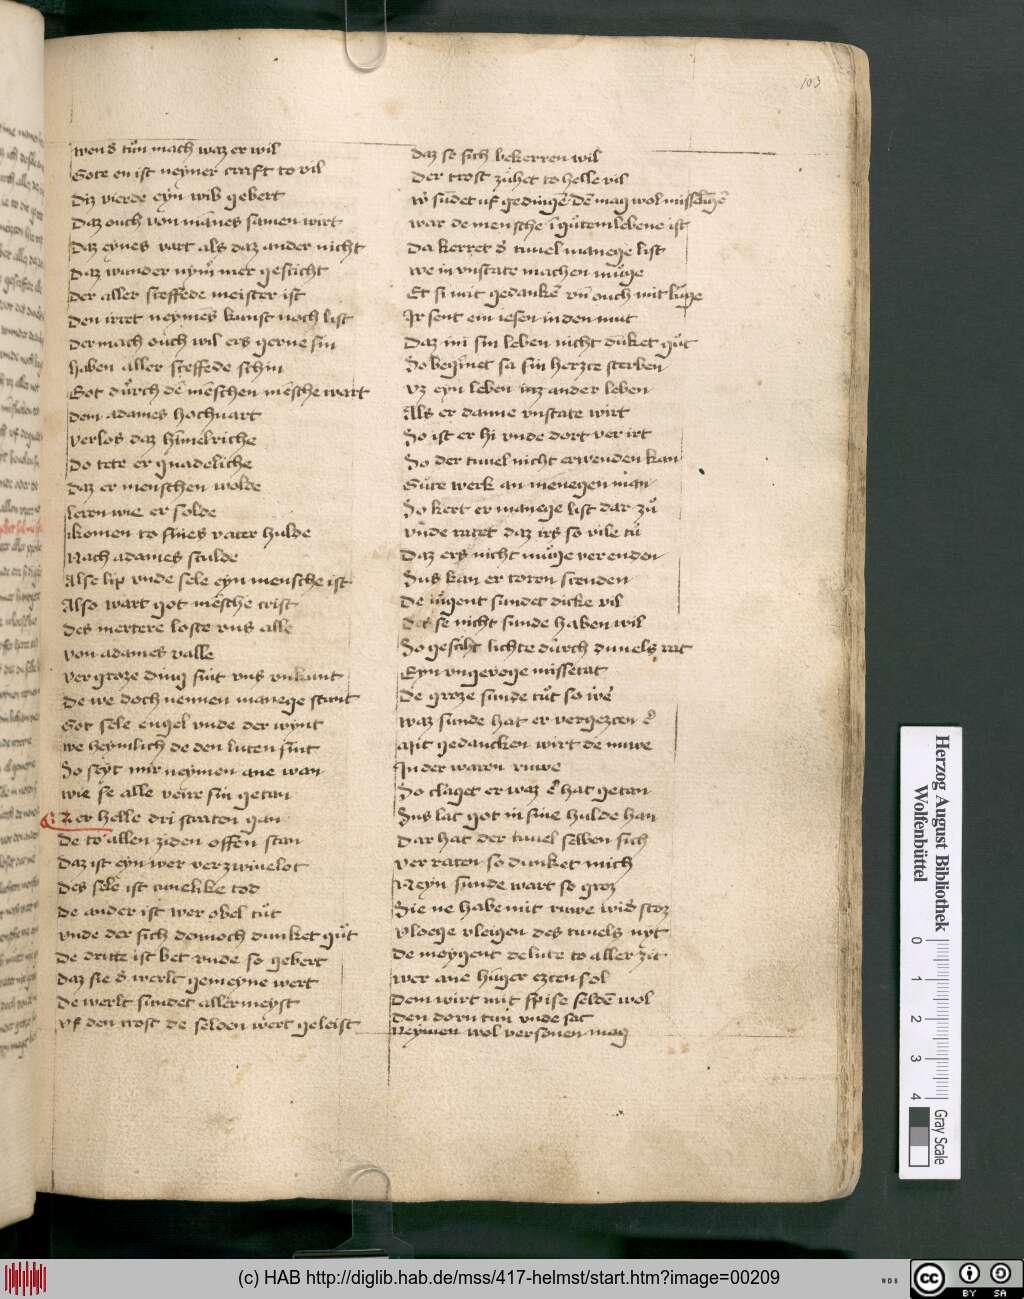 103
wen d tuon mach waz er wil
Gote en ist neyner craft to vil
Diz vierde eyn wib gebert
Daz ouch von mānes samen wirt
Daz eynes vart als daz ander nicht
Daz wunder nym mer geschicht
Der aller scheffede meister ist
Den irret neymes kunst noch list
Dermach ouch wil ers gerne sin
haben aller scheffede schin
Got durch dē mēschen mēsche wart
dem adames hochvart
verlos daz himelriche
Do tete er gnadeliche
Daz er menschen wolde
leren wie er solde
komen to sines vater hulde
Nach adames sculde
Alse lip vnde sele eyn mensche ist
Also wart got mēsche crist
Des mertere loste vns alle
von adames valle
ver groze ding sint vns vnkunt
De we doch nennen manege stunt
Got sele engel vnde der wynt
we heymlich de den luten sint
So seyt mir neymen ane wan
wie se alle veire sin getan
Zer helle dri straten gan
De to allen ziden offen stan
Daz ist eyn wer verzwiuelot
Des sele ist ewelike tod
De ander ist wer obel tuot
vnde der sich dennoch dunket guot
De dritte ist bet vnde so gebert
Daz sie d werlt gemeyne wert
De werlt sundet allermeyst
vf den trost de selden wert geleist
Daz se sich bekerren wil
Der trost zuhet to helle vil
war de mensche ī guotem lebene ist
Da kerret d tiuel manege list
we in vnstate machen muoge
Et si mit gedankē vn̄ ouch mit luge
Ir sent ein iesen in den mut
Daz im sin leben nicht duket guot
So beginet sa sin herzce sterben
vz eyn leben inz ander leben
Als er danne vnstate wirt
So ist er hi vnde dort ver irt
So der tiuel nicht erwenden kan
Gute werk an menegen man
So kert er manege list dar zuo
vnde ratet daz irs so vile tuo
Daz ers nicht muoge verenden
Sus kan er toren scenden
De iugent sundet dicke vil
des se nicht sunde haben wil
So geschit lichte durch duuels rat
Eyn vngevoge missetat
De groze sunde tuot so we
waz sunde hat er vergezcen e
Mit gedancken wirt de niuwe
In der waren ruwe
So claget er waz er hat getan
Sus lat got in sine hulde han
Dar hat der tiuel selben sich
ver raten so dunket mich
Neyn sunde wart so groz
Sie ne habe mit ruwe wids stoz
vloege vleigen des tiuels nyt
De moygent de lute to aller zit
wer ane hunger ezcen sol
Dem wirt mit spise seldē wol
Den dorn tuin vnde sac
Neymen wol versonen mag
Herzog August Bibliothek
Wolfenbüttel
0 1 2 3 4
Gray Scale
(c) HAB http://diglib.hab.de/mss/417-helmst/start.htm?image=00209
WDB
cc BY SA